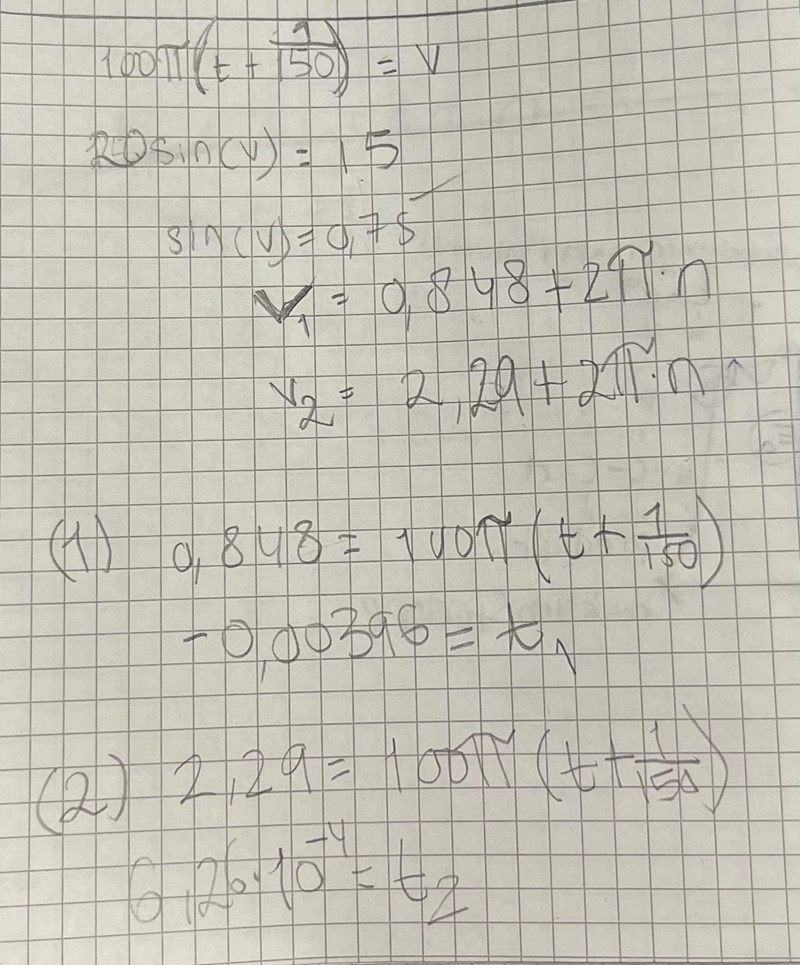 100π(t + 1/150) = v
20sin(v) = 15
sin(v) = 0,75
v₁ = 0,848 + 2π·n
v₂ = 2,29 + 2π·n
(1) 0,848 = 100π(t + 1/150)
-0,00396 = t₁
(2) 2,29 = 100π(t + 1/150)
6,26·10⁻⁴ = t₂